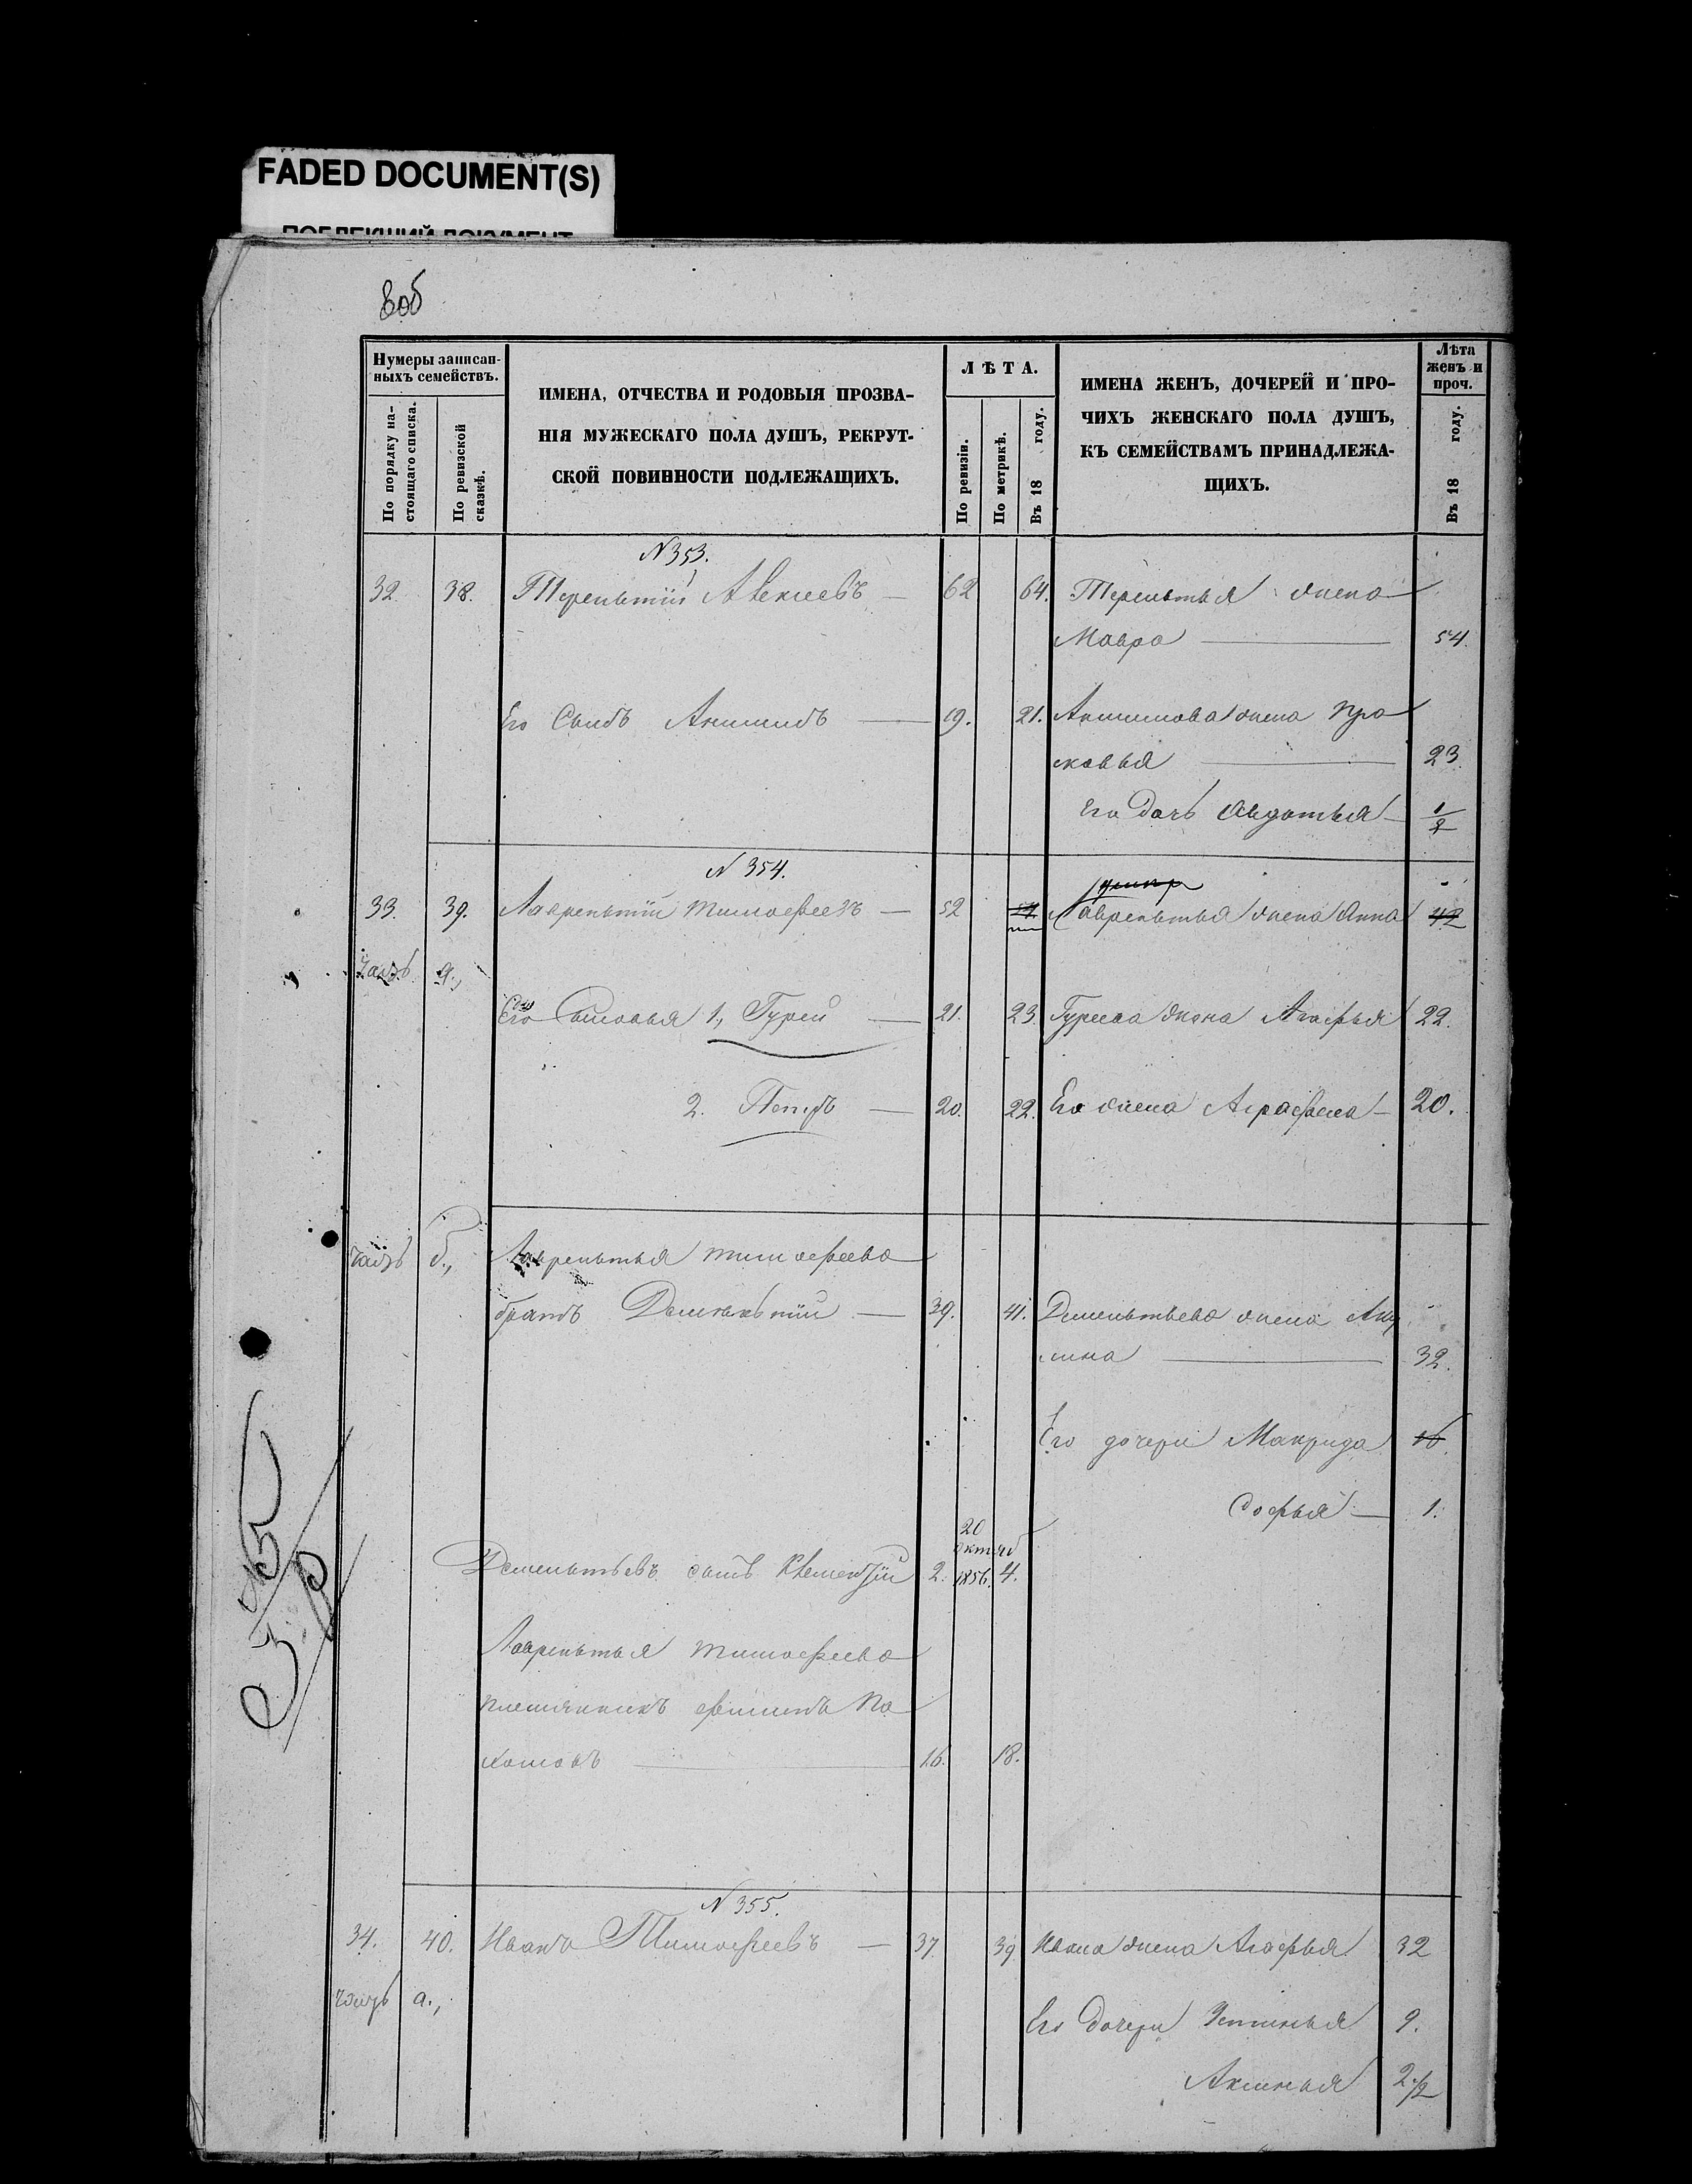 FADED DOCUMENT(S)
ПОБЛЕКШИЙ ДОКУМЕНТ
8об
Нумеры записан-
ныхъ семействъ.
По порядку на-
стоящаго списка.
По ревизской
сказкѣ.
ИМЕНА, ОТЧЕСТВА И РОДОВЫЯ ПРОЗВА-
НІЯ МУЖЕСКАГО ПОЛА ДУШЪ, РЕКРУТ-
СКОЙ ПОВИННОСТИ ПОДЛЕЖАЩИХЪ.
ЛѢТА.
По ревизіи.
По метрикѣ.
Въ 18 году.
ИМЕНА ЖЕНЪ, ДОЧЕРЕЙ И ПРО-
ЧИХЪ ЖЕНСКАГО ПОЛА ДУШЪ,
КЪ СЕМЕЙСТВАМЪ ПРИНАДЛЕЖА-
ЩИХЪ.
Лѣта
женъ и
проч.
Въ 18 году.
N 353.
32. 38. Терентий Алексеевъ — 62 64. Терентья жена
Мавра — 54.
Его Сынъ Анисимъ — 19. 21. Анисимова жена Пра
сковья — 23.
Его дочь Авдотья — 1/2
N 354.
33. 39. Лаврентий Тимофеевъ — 52 54 Лаврентья жена Анна 42
часть а.,
Его Сыновья 1, Гурей — 21. 23. Гурева жена Агафья 22.
2. Петръ — 20. 22. Его жена Аграфена — 20.
часть б., Лаврентья Тимофеева
братъ Дементий — 39. 41. Дементьева жена Аку
лина — 32.
Его дочери Макрида 16.
Софья — 1.
20
октяб
Дементьевъ сынъ Клементий 2. 1856. 4.
Лаврентья Тимофеева
племянникъ Филипъ Па
хомовъ — 16. 18.
N 355.
34. 40. Иванъ Тимофеевъ — 37 39 Ивана жена Агафья 32
часть а.,
Его дочери Устинья 9.
Аксинья 2 1/2